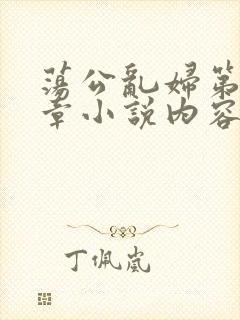 蕩公亂婦第
章小説内容
丁佩嵐